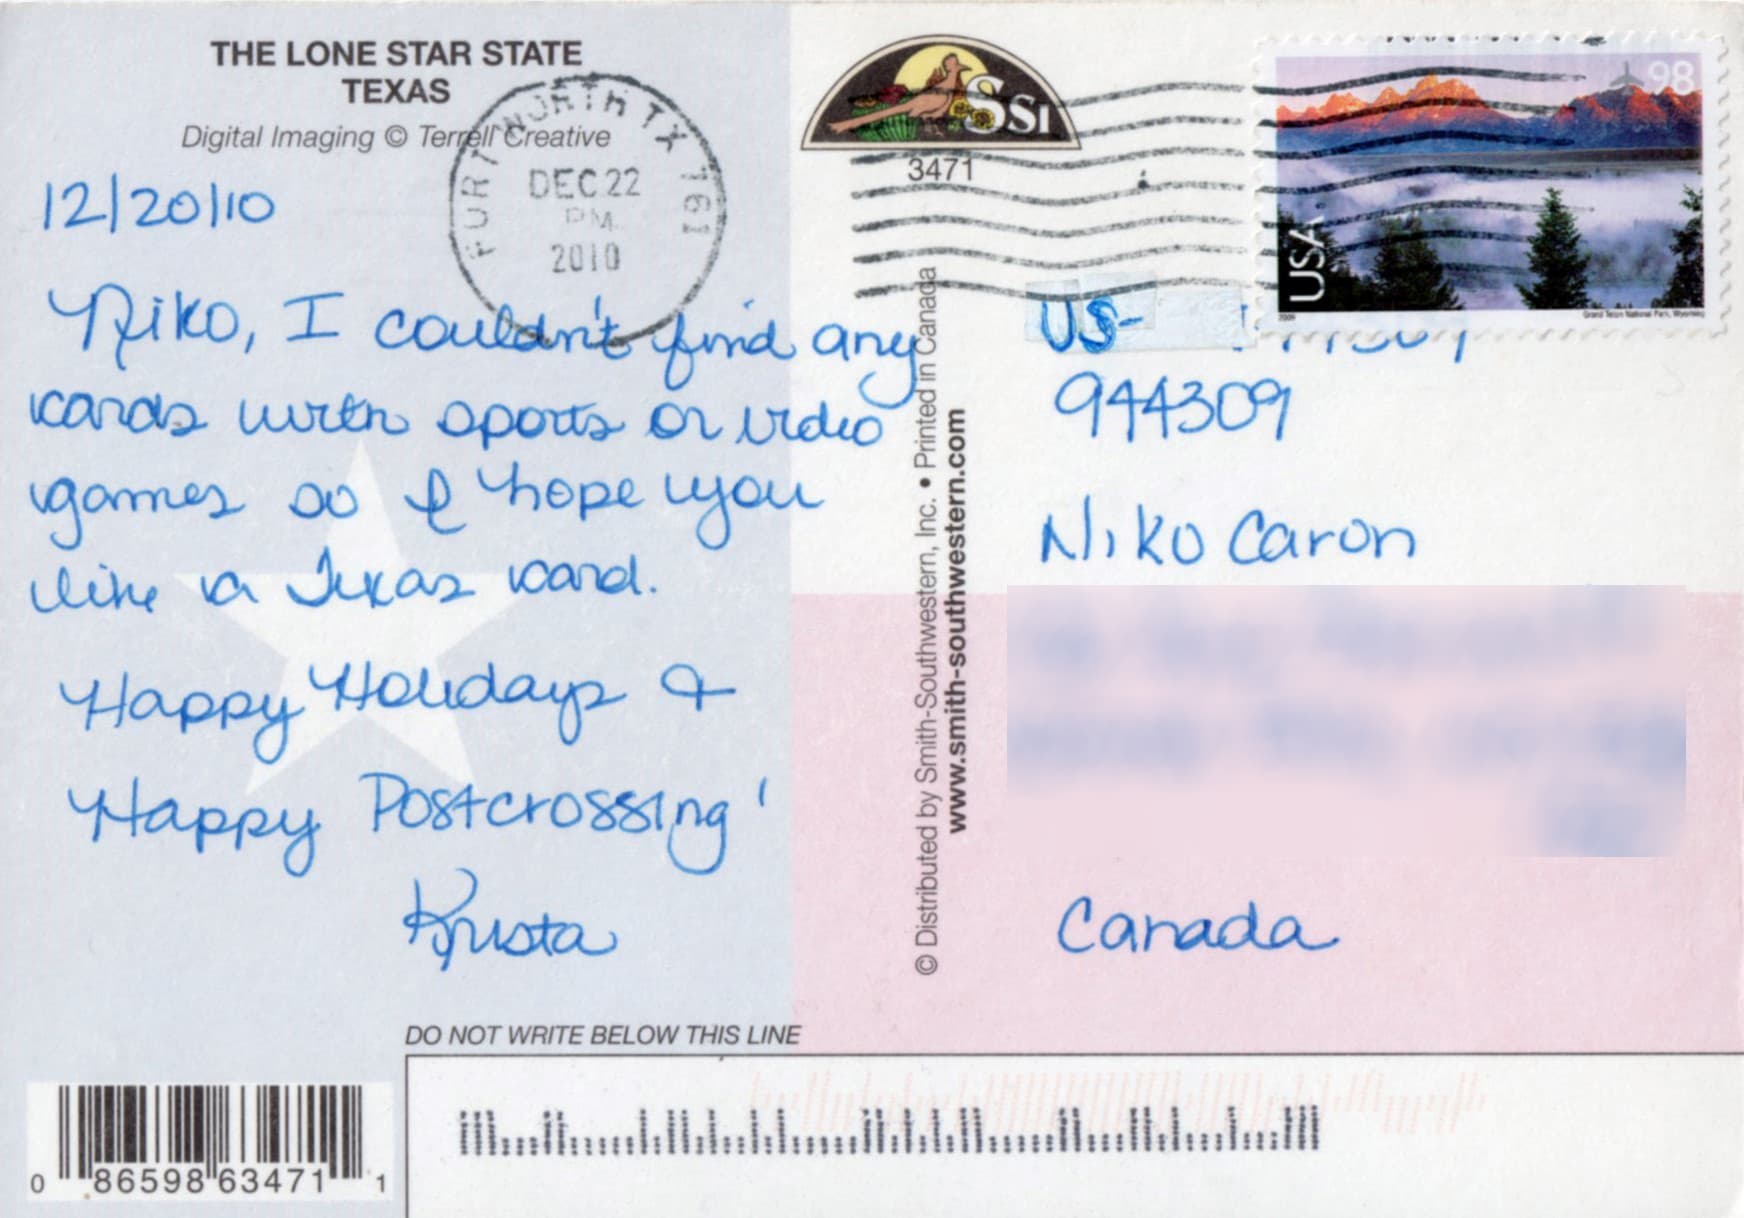 THE LONE STAR STATE
TEXAS
Digital Imaging © Terrell Creative
FORT WORTH TX 761
DEC 22
PM
2010
12/20/10
Niko, I couldn't find any
cards with sports or video
games so I hope you
like a Texas card.
Happy Holidays &
Happy Postcrossing!
Krista
SSI
3471
98
USA
2009
Grand Teton National Park, Wyoming
© Distributed by Smith-Southwestern, Inc. • Printed in Canada
www.smith-southwestern.com
US-
944309
Niko Caron
Canada
DO NOT WRITE BELOW THIS LINE
0 86598 63471 1